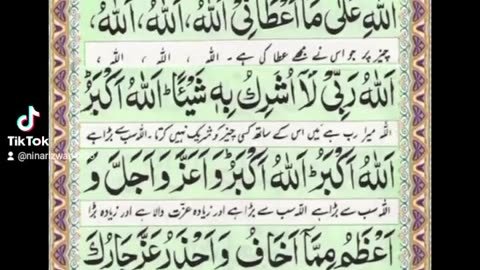 اللهِ عَلٰى مَا اَعْطَانِىْ اَللهُ، اَللهُ، اَللهُ،
چیز پر جو اس نے مجھے عطا کی ہے۔ اللہ ، اللہ ، اللہ ،
اَللهُ رَبِّىْ لَا اُشْرِكُ بِهٖ شَيْئًا ؕ اَللهُ اَكْبَرُ ؕ
اللہ میرا رب ہے میں اس کے ساتھ کسی چیز کو شریک نہیں کرتا ۔ اللہ سب سے بڑا ہے
اَللهُ اَكْبَرُ ؕ اَللهُ اَكْبَرُ وَاَعَزُّ وَاَجَلُّ وَ
اللہ سب سے بڑا ہے اللہ سب سے بڑا ہے اور زیادہ عزت والا ہے اور زیادہ بڑا
اَعْظَمُ مِمَّا اَخَافُ وَاَحْذَرُ عَزَّ جَارُكَ
TikTok